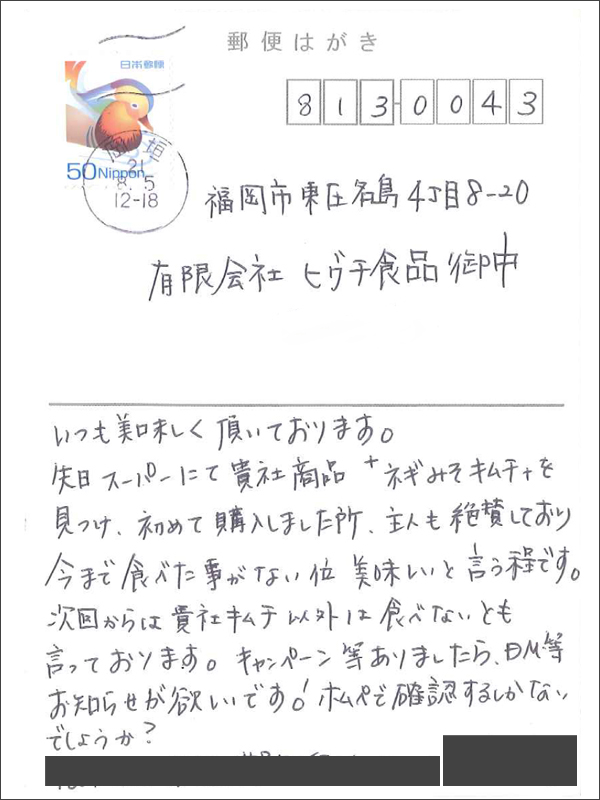 郵便はがき
日本郵便
50 Nippon
21
8.5
12-18
813-0043
福岡市東区名島4丁目8-20
有限会社 ヒグチ食品 御中
いつも美味しく頂いております。
先日 スーパーにて 貴社商品 "ネギみそキムチ"を
見つけ、初めて購入しました所、主人も絶賛しており
今まで食べた事がない位 美味しいと言う程です。
次回からは 貴社キムチ以外は食べないとも
言っております。キャンペーン等ありましたら、DM等
お知らせが欲しいです!ホムペで確認するしかない
でしょうか?